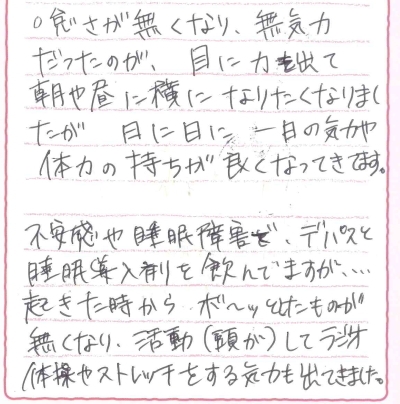 。
さが無くなり、無気力
だったのが、目に力も出て
朝や昼に横になりたくなりまし
たが 日に日に 一日の気力や
体力の持ちが良くなってきてます。
不安感や睡眠障害で、デパスと
睡眠導入剤を飲んでますが、…
起きた時から ボ〜ッとしたものが
無くなり、活動(頭が)してラジオ
体操やストレッチをする気力も出てきました。